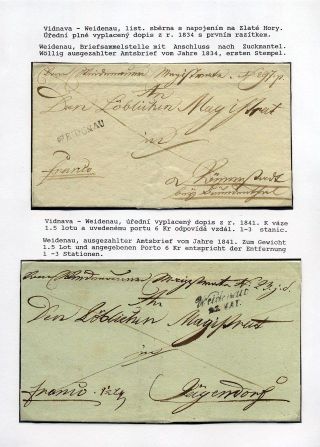 Vidnava - Weidenau, list. sběrna s napojením na Zlaté Hory.
Úřední plně vyplacený dopis z r. 1834 s prvním razítkem.
Weidenau, Briefsammelstelle mit Anschluss nach Zuckmantel.
Völlig ausgezahlter Amtsbrief vom Jahre 1834, ersten Stempel.
An
Den Löblichen Magistrat
WEIDENAU
in
franco
Vidnava - Weidenau, úřední vyplacený dopis z r. 1841. K váze
1.5 lotu a uvedenému portu 6 Kr odpovídá vzdál. 1-3 stanic.
Weidenau, ausgezahlter Amtsbrief vom Jahre 1841. Zum Gewicht
1.5 Lot und angegebenen Porto 6 Kr entspricht der Entfernung
1 -3 Stationen.
An
Den Löblichen Magistrat
in
franco
Jägendorf